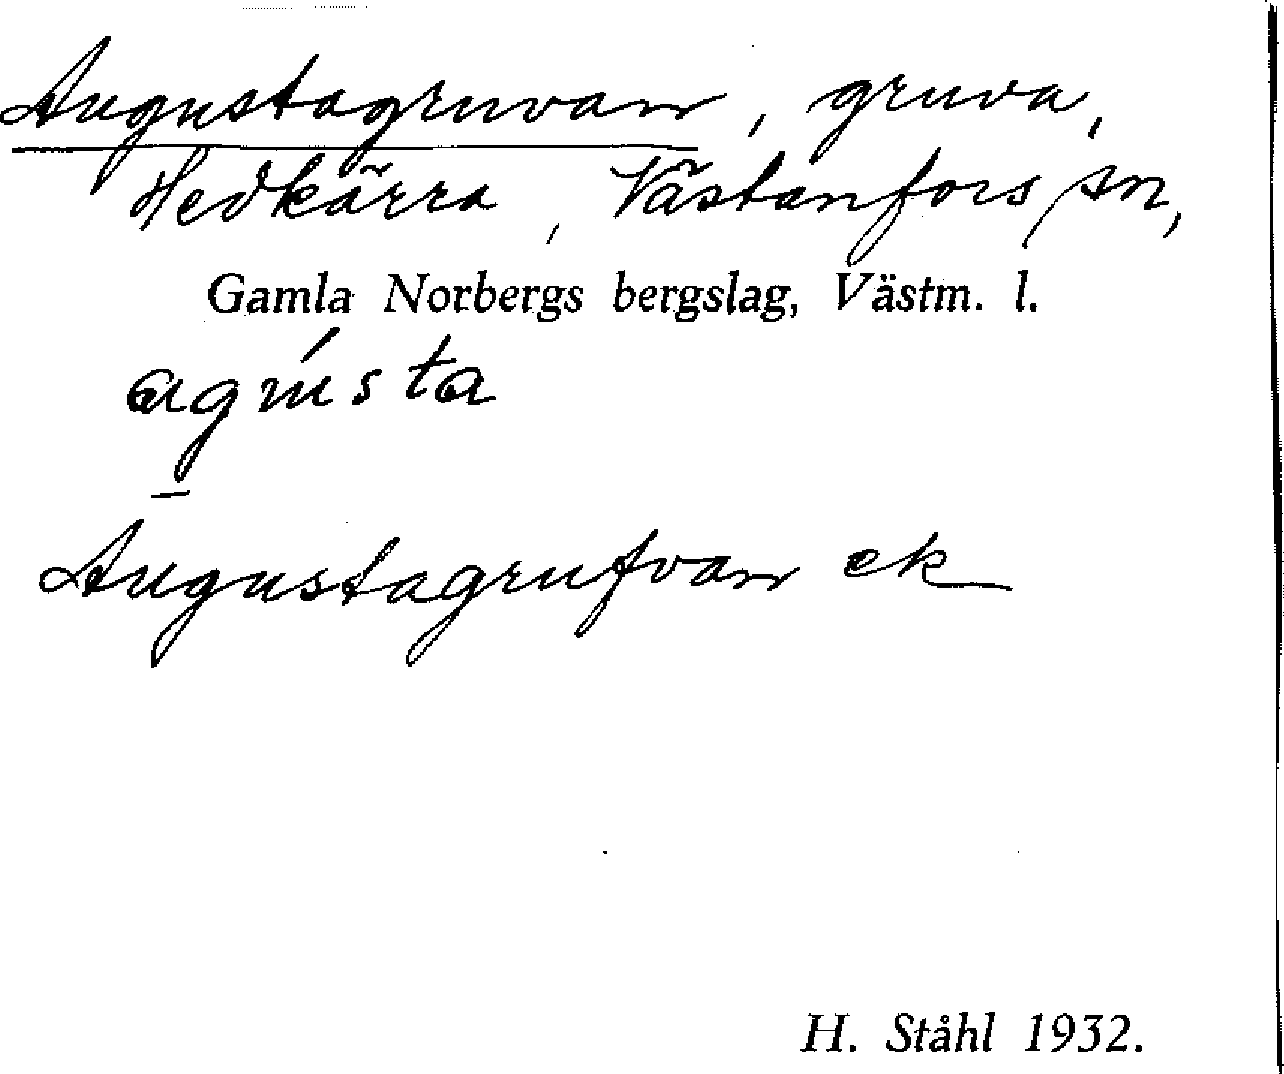 Augustagruvan, gruva,
Hedkärra, Västanfors sn,
Gamla Norbergs bergslag, Västm. l.
agústa
Augustagrufvan ek
H. Ståhl 1932.